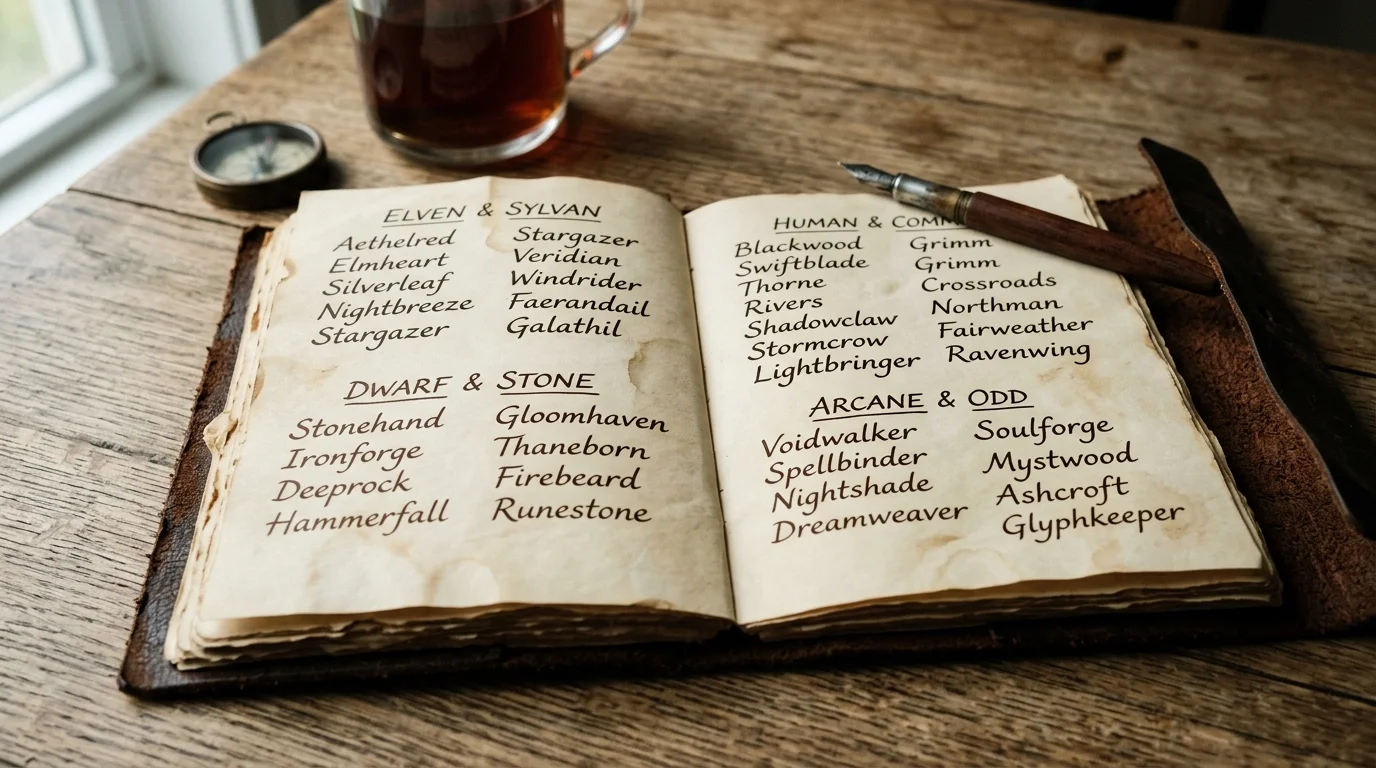 ELVEN & SYLVAN
Aethelred
Elmheart
Silverleaf
Nightbreeze
Stargazer
Stargazer
Veridian
Windrider
Faerandail
Galathil
DWARF & STONE
Stonehand
Ironforge
Deeprock
Hammerfall
Gloomhaven
Thaneborn
Firebeard
Runestone
HUMAN &
Blackwood
Swiftblade
Thorne
Rivers
Shadowclaw
Stormcrow
Lightbringer
Grimm
Grimm
Crossroads
Northman
Fairweather
Ravenwing
ARCANE & ODD
Voidwalker
Spellbinder
Nightshade
Dreamweaver
Soulforge
Mystwood
Ashcroft
Glyphkeeper